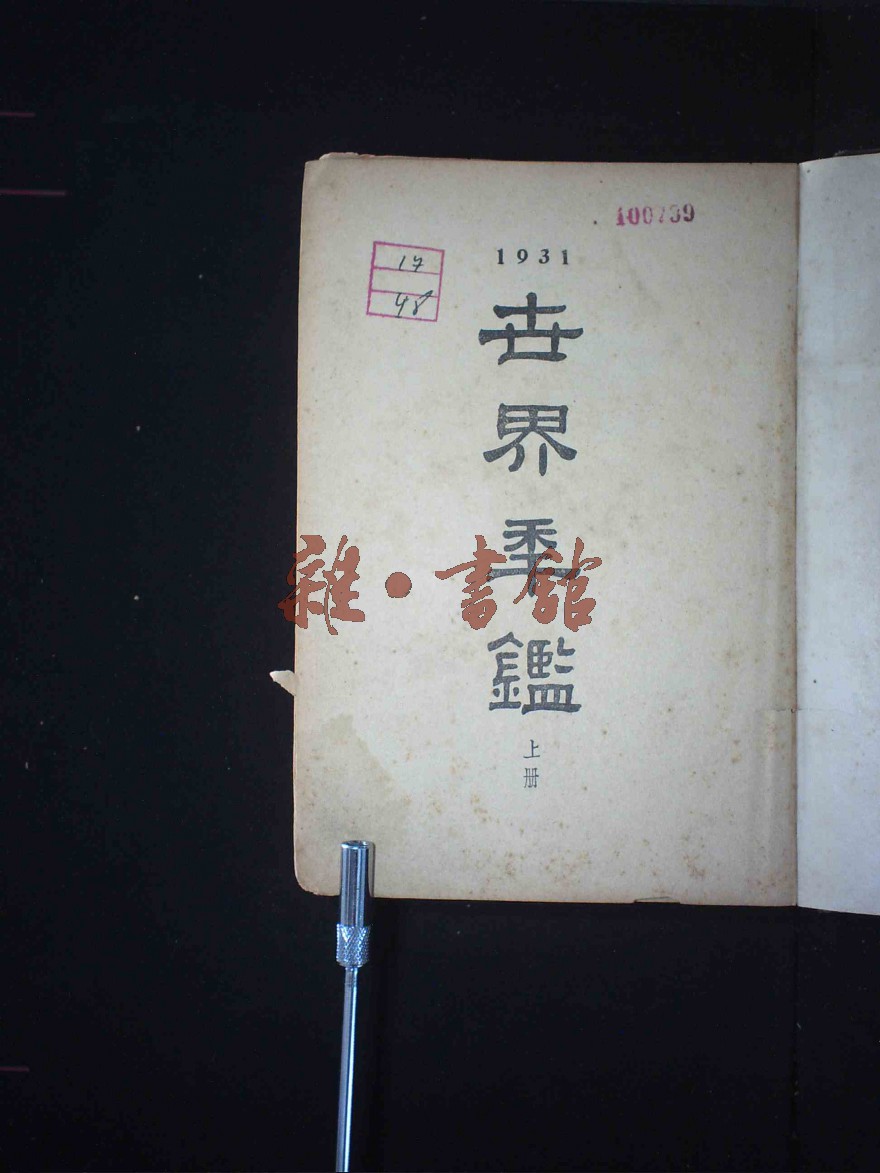 1931
世界秊鑑
上册
17
48
雜·書館